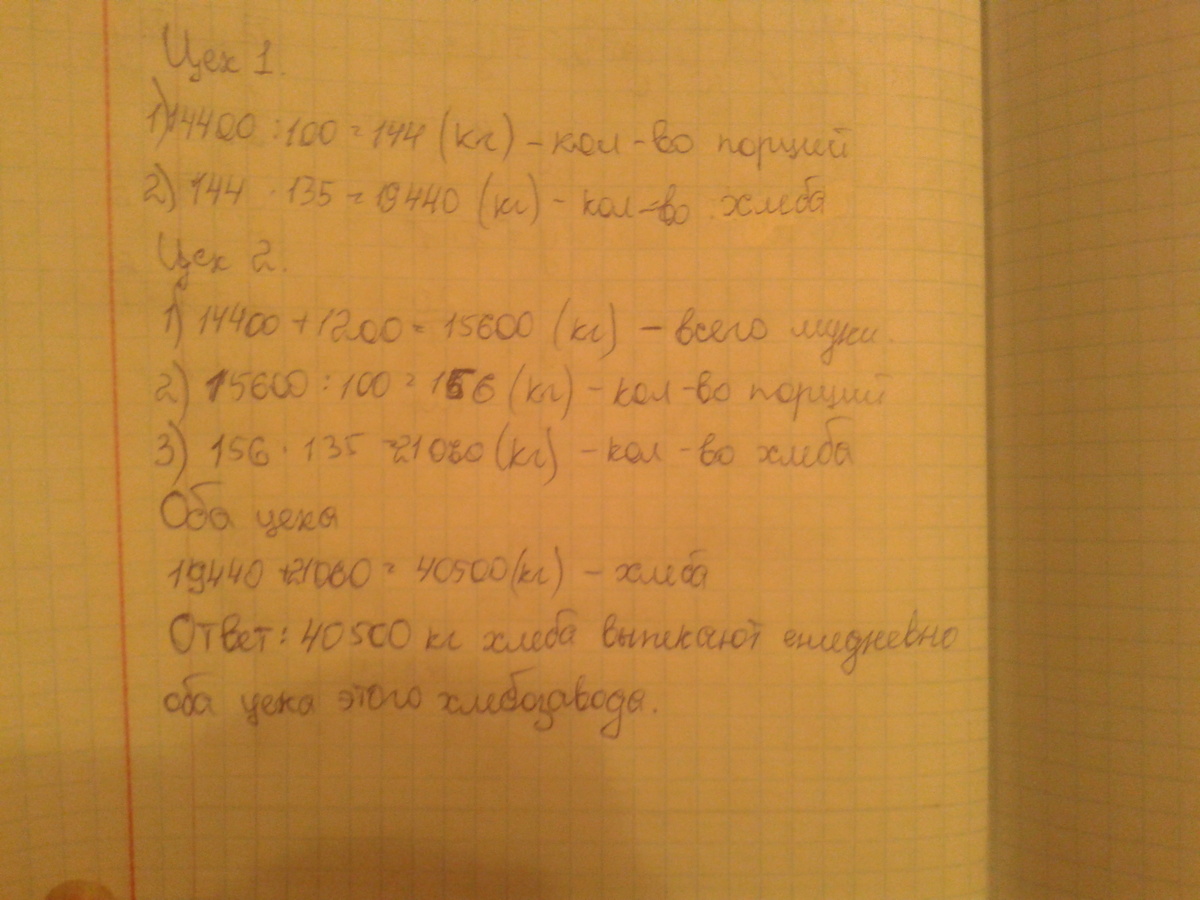 Цех 1.
1) 14400 : 100 = 144 (кг) – кол-во порций
2) 144 · 135 = 19440 (кг) – кол-во хлеба
Цех 2.
1) 14400 + 1200 = 15600 (кг) – всего муки.
2) 15600 : 100 = 156 (кг) – кол-во порций
3) 156 · 135 = 21060 (кг) – кол-во хлеба
Оба цеха
19440 + 21060 = 40500 (кг) – хлеба
Ответ: 40500 кг хлеба выпекают ежедневно
оба цеха этого хлебозавода.